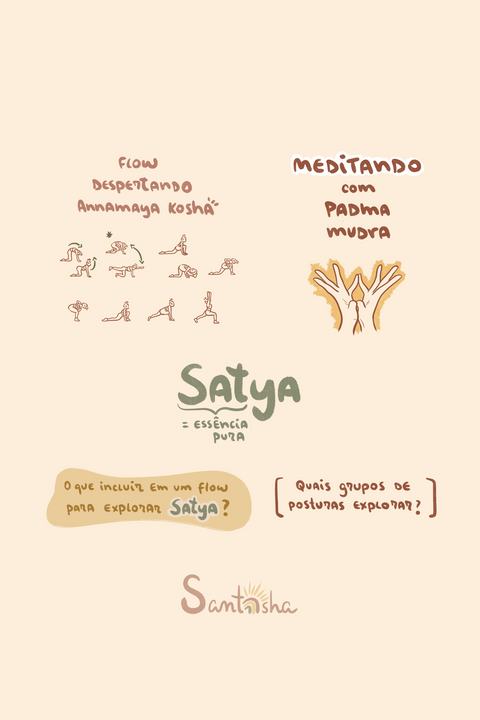 Flow
Despertando
Annamaya Kosha
*
Meditando
com
Padma
mudra
Satya
= essência
pura
O que incluir em um flow
para explorar Satya?
[Quais grupos de
posturas explorar?]
Santosha